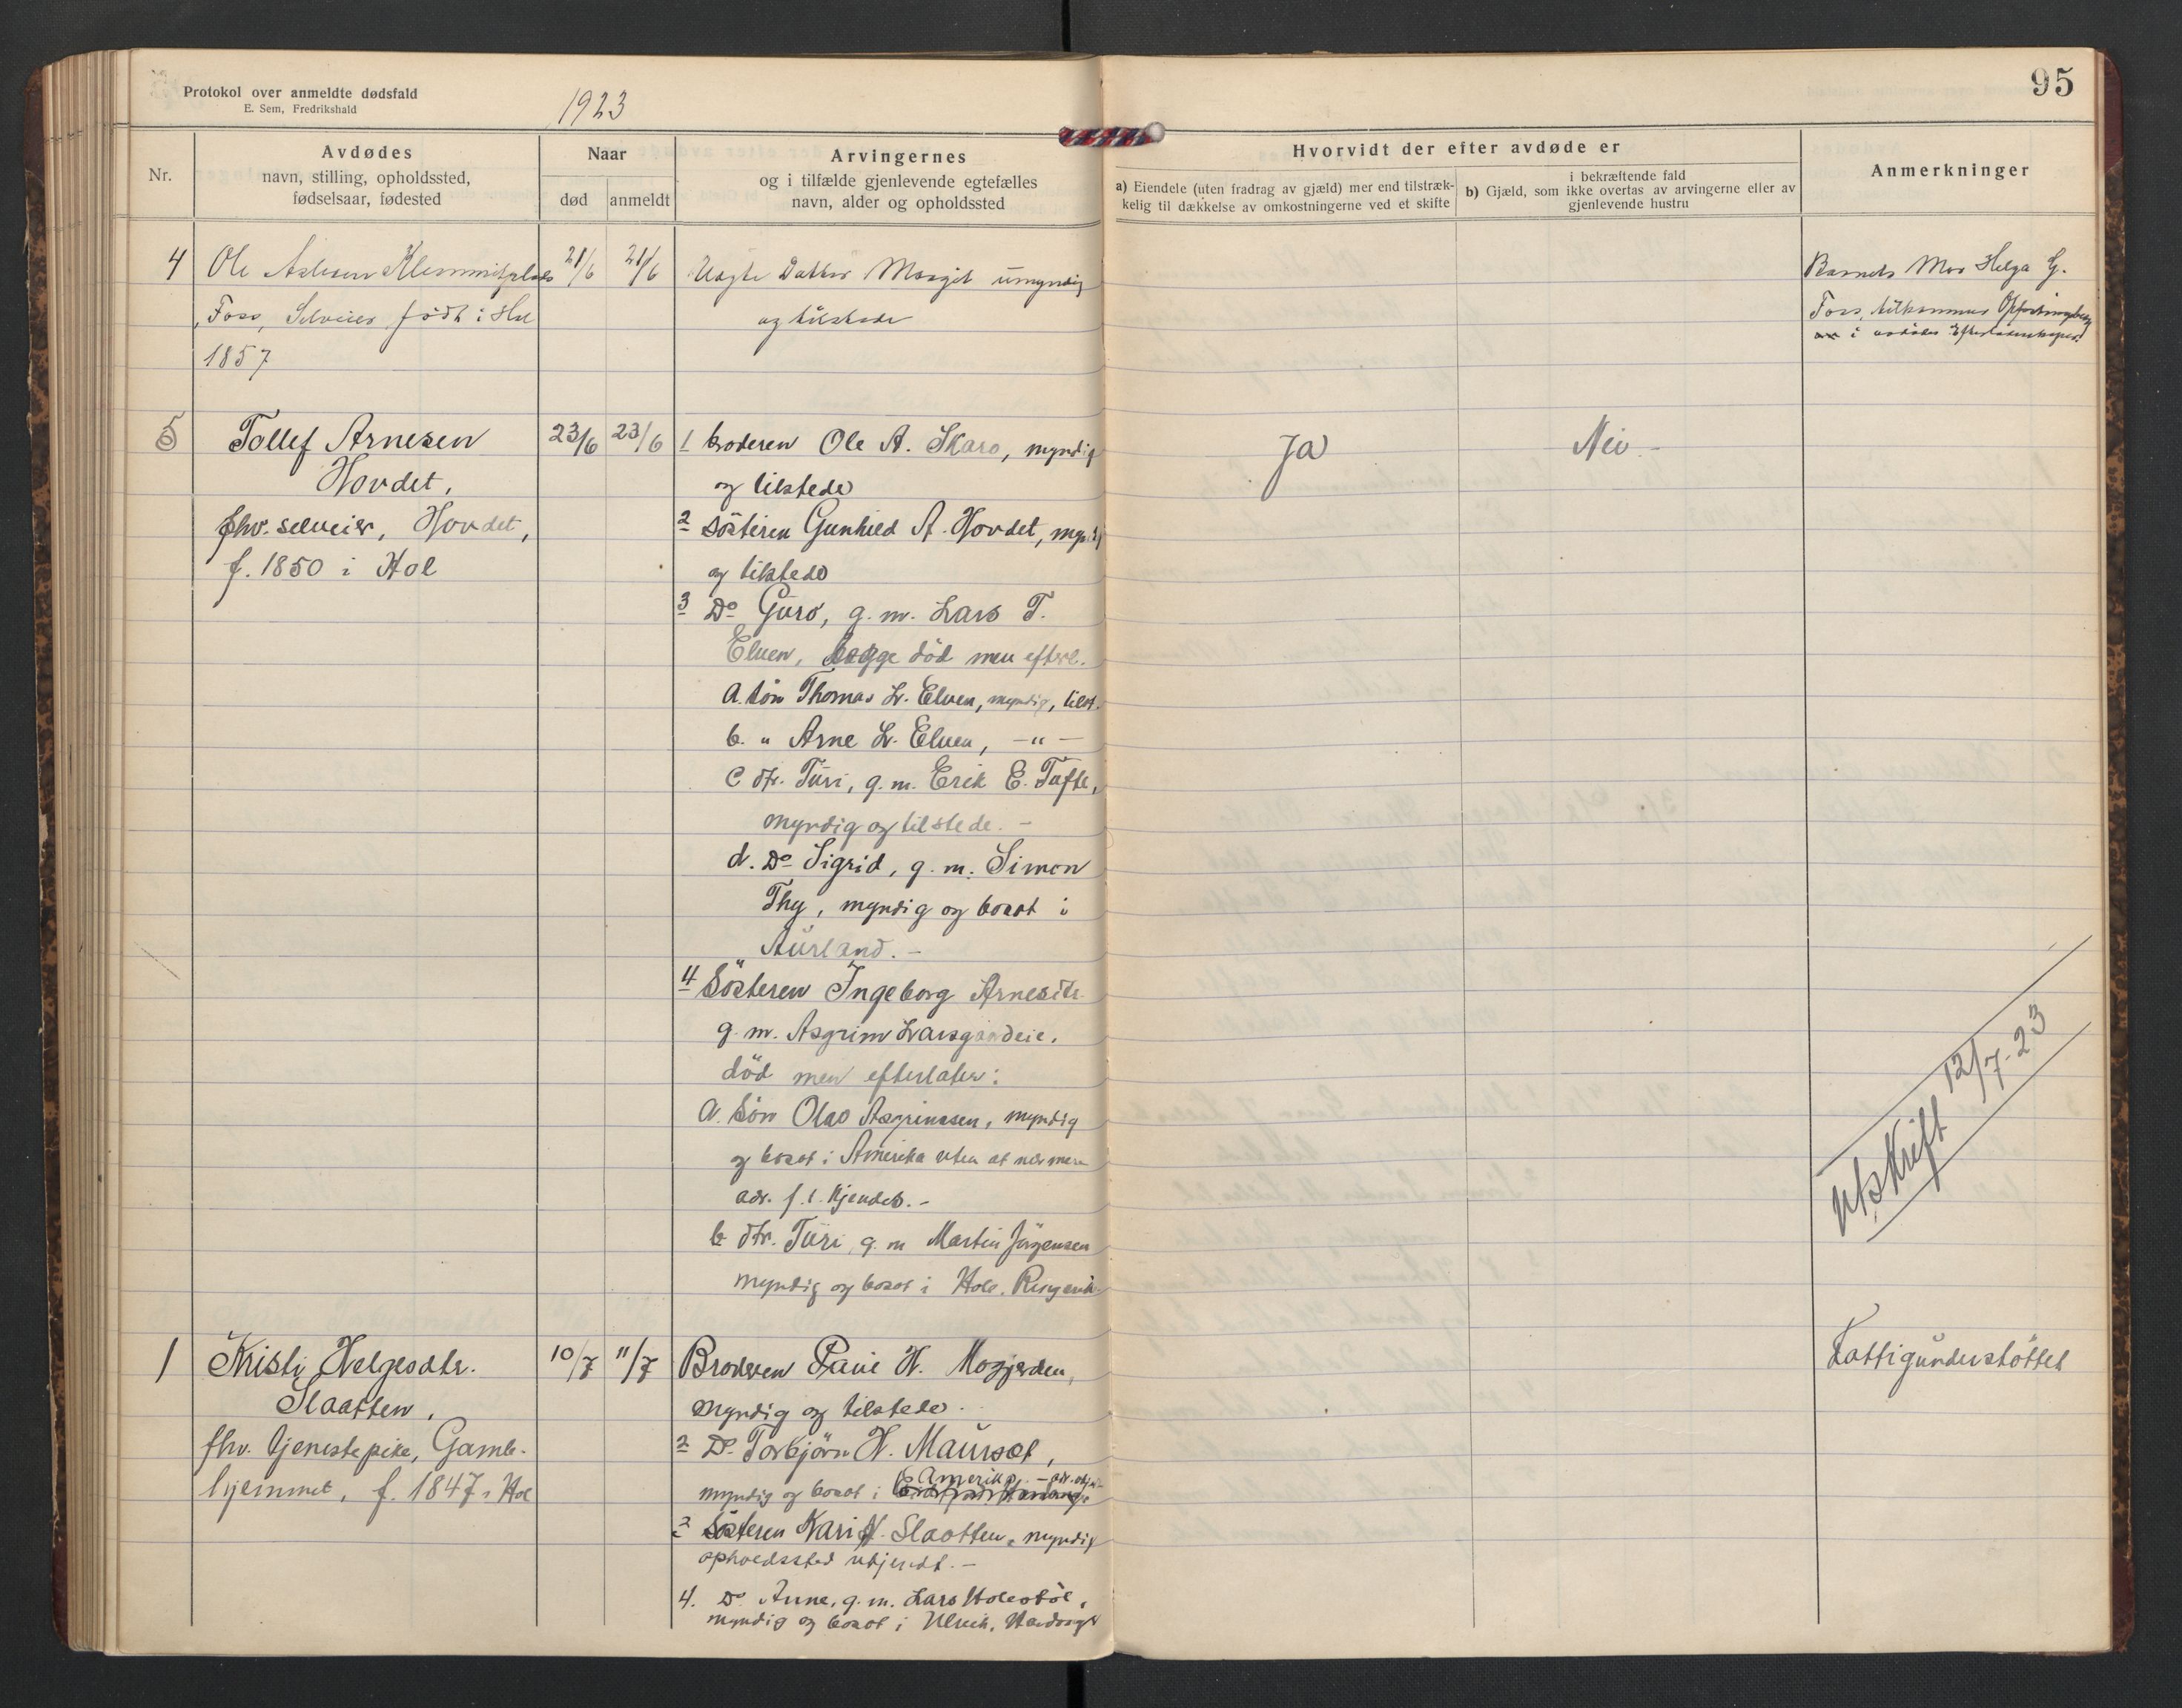 95
Protokol over anmeldte dødsfald
E. Sem, Fredrikshald
1923
Nr.
Avdødes
navn, stilling, opholdssted,
fødselsaar, fødested
Naar
død
anmeldt
Arvingernes
og i tilfælde gjenlevende egtefælles
navn, alder og opholdssted
Hvorvidt der efter avdøde er
a) Eiendele (uten fradrag av gjæld) mer end tilstræk-
kelig til dækkelse av omkostningerne ved et skifte
i bekræftende fald
b) Gjæld, som ikke overtas av arvingerne eller av
gjenlevende hustru
Anmerkninger
4 Ole 21/6 21/6 Uægte Datter Margit umyndig
Foss, Selveier født i Hol
1857
og tilstede
Barnets Mor Helga G.
Foss, tilkommer
i avdødes
5 Tollef Arnesen 23/6 23/6 1 broderen Ole A. Skaro, myndig Ja Nei. -
Hovdet, og tilstede
fhv. selveier, Hovdet, 2 Søsteren Gunhild A. Hovdet, myndig
f. 1850 i Hol og tilstede
3 Do Guro, g. m. Lars T.
Elven, begge død men efterl.
a. søn Thomas L. Elven, myndig, tilst.
b. " Arne L. Elven, - " -
c dtr. Turi, g. m. Erik E. Tufte,
myndig og tilstede. -
d. Do Sigrid, g. m. Simon
Thy, myndig og bosat i
Aurland. -
4 Søsteren Ingeborg Arnesdtr.
g. m. Asgrim Larsgardeie,
død men efterlater:
a. søn Olav Asgrimssen, myndig
og bosat i Amerika uten at nærmere
adr. f. t. kjendes. -
b dtr. Turi, g. m Martin Jørgensen
myndig og bosat i Hole, Ringerik.
Utskrift 12/7-23
1 Kristi Helgesdtr. 10/7 11/7 Broderen H. Fattigunderstøttet
Slaatten, myndig og tilstede. -
fhv. tjenestepike, Gamle- 2 Do Torbjørn H. Maurset,
hjemmet, f. 1847 i Hol myndig og bosat i Amerika. -
3 Søsteren Kari H. Slaatten, myndig
opholdssted ukjendt. -
4. Do Anne, g. m. Lars Holestøl,
myndig og bosat i